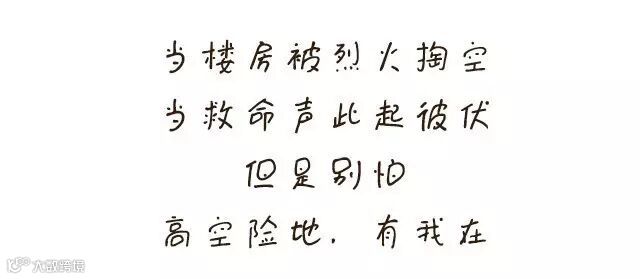 当楼房被烈火掏空
当救命声此起彼伏
但是别怕
高空险地，有我在
大数跨境